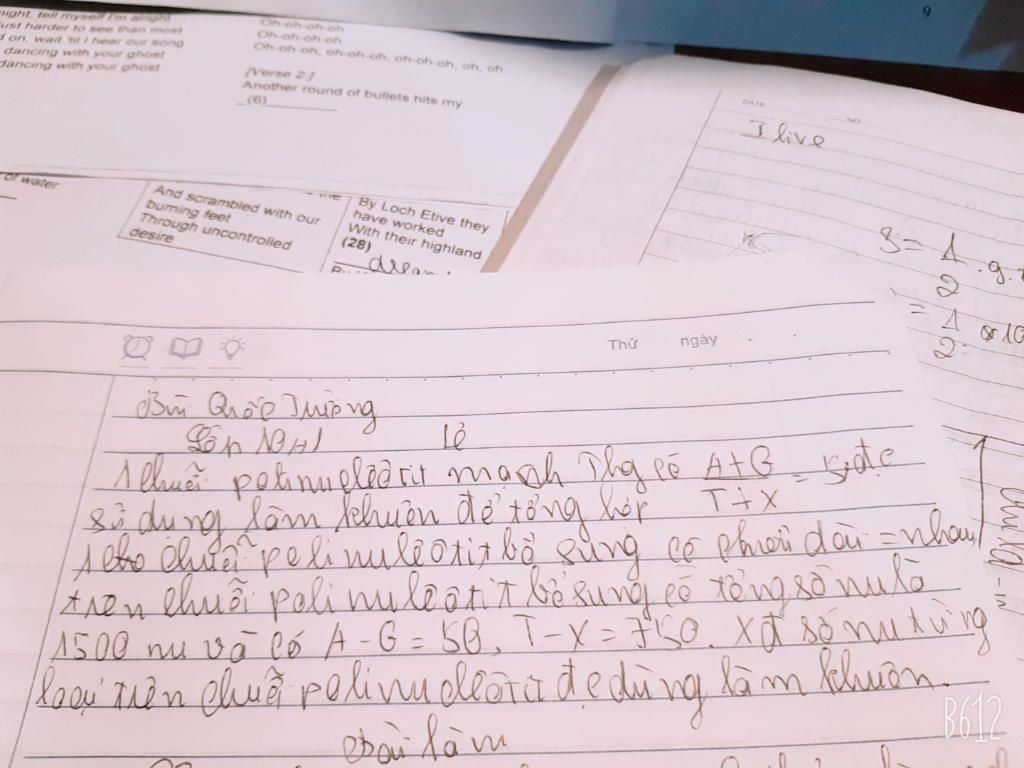 9
night, tell myself I'm alright
ust harder to see than most
d on, wait 'til I hear our song
dancing with your ghost
dancing with your ghost
Oh-oh-oh-oh
Oh-oh-oh-oh
Oh-oh-oh, oh-oh-oh, oh-oh-oh, oh, oh
[Verse 2:]
Another round of bullets hits my
_(6)__________
of water
And scrambled with our
burning feet
Through uncontrolled
desire
By Loch Etive they
have worked
With their highland
(28)
DATE
NO
I live
S = 1/2 . g.
= 1/2 10
Thứ ngày
Bùi Quốc Trường
Lớp 10A1 lẻ
1 chuỗi polinuclêôtit mạch Thg có A+G/T+X = 5, đc
sử dụng làm khuôn để tổng hợp
1 chuỗi polinuclêôtit bổ sung có chiều dài = nhau,
trên chuỗi polinuclêôtit bổ sung có tổng số nu là
1500 nu và có A - G = 50, T - X = 750. Xđ số nu từng
loại trên chuỗi polinuclêôtit đc dùng làm khuôn.
Bài làm
B612